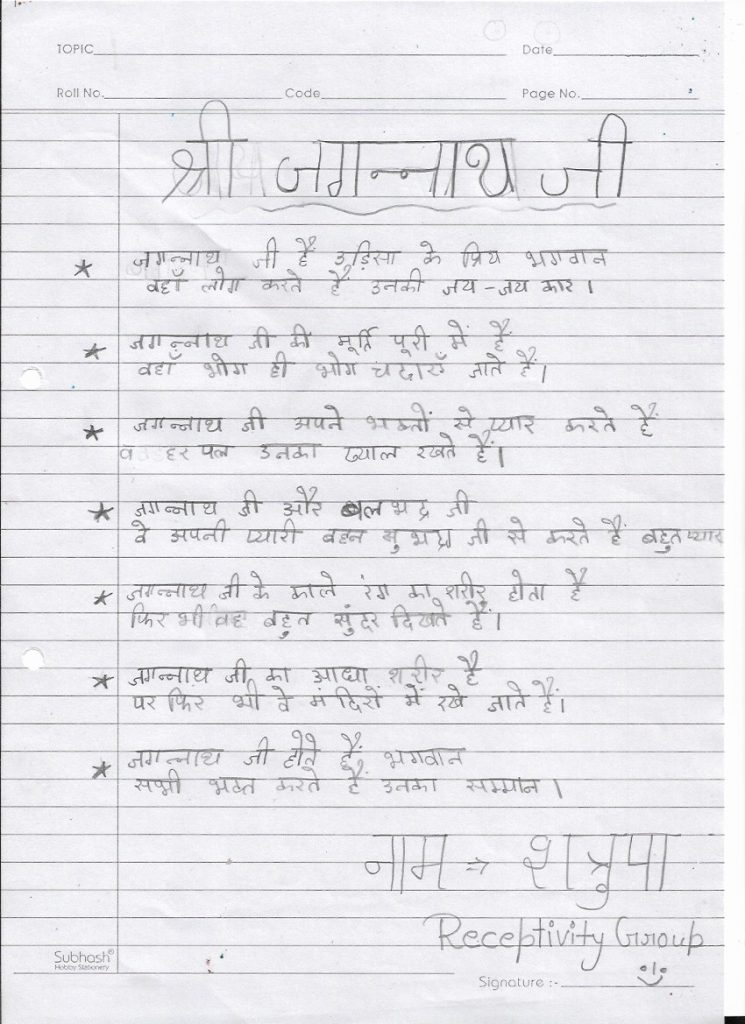 TOPIC Date
Roll No. Code Page No.
श्री जगन्नाथ जी
★ जगन्नाथ जी हैं उड़िसा के प्रिय भगवान
वहाँ लोग करते हैं उनकी जय-जय कार।
★ जगन्नाथ जी की मूर्ति पूरी में हैं
वहाँ भोग ही भोग चढ़ाएँ जाते हैं।
★ जगन्नाथ जी अपने भक्तों से प्यार करते हैं
व हर पल उनका ख्याल रखते हैं।
★ जगन्नाथ जी और बलभद्र जी
वे अपनी प्यारी बहन सुभद्रा जी से करते हैं बहुत प्यार
★ जगन्नाथ जी के काले रंग का शरीर होता है
फिर भी वह बहुत सुंदर दिखते हैं।
★ जगन्नाथ जी का आधा शरीर है
पर फिर भी वे मंदिरों में रखे जाते हैं।
★ जगन्नाथ जी होते हैं भगवान
सभी भक्त करते हैं उनका सम्मान।
नाम ⇒ शत्रुपा
Receptivity Group
Subhash®
Hobby Stationery
Signature :-